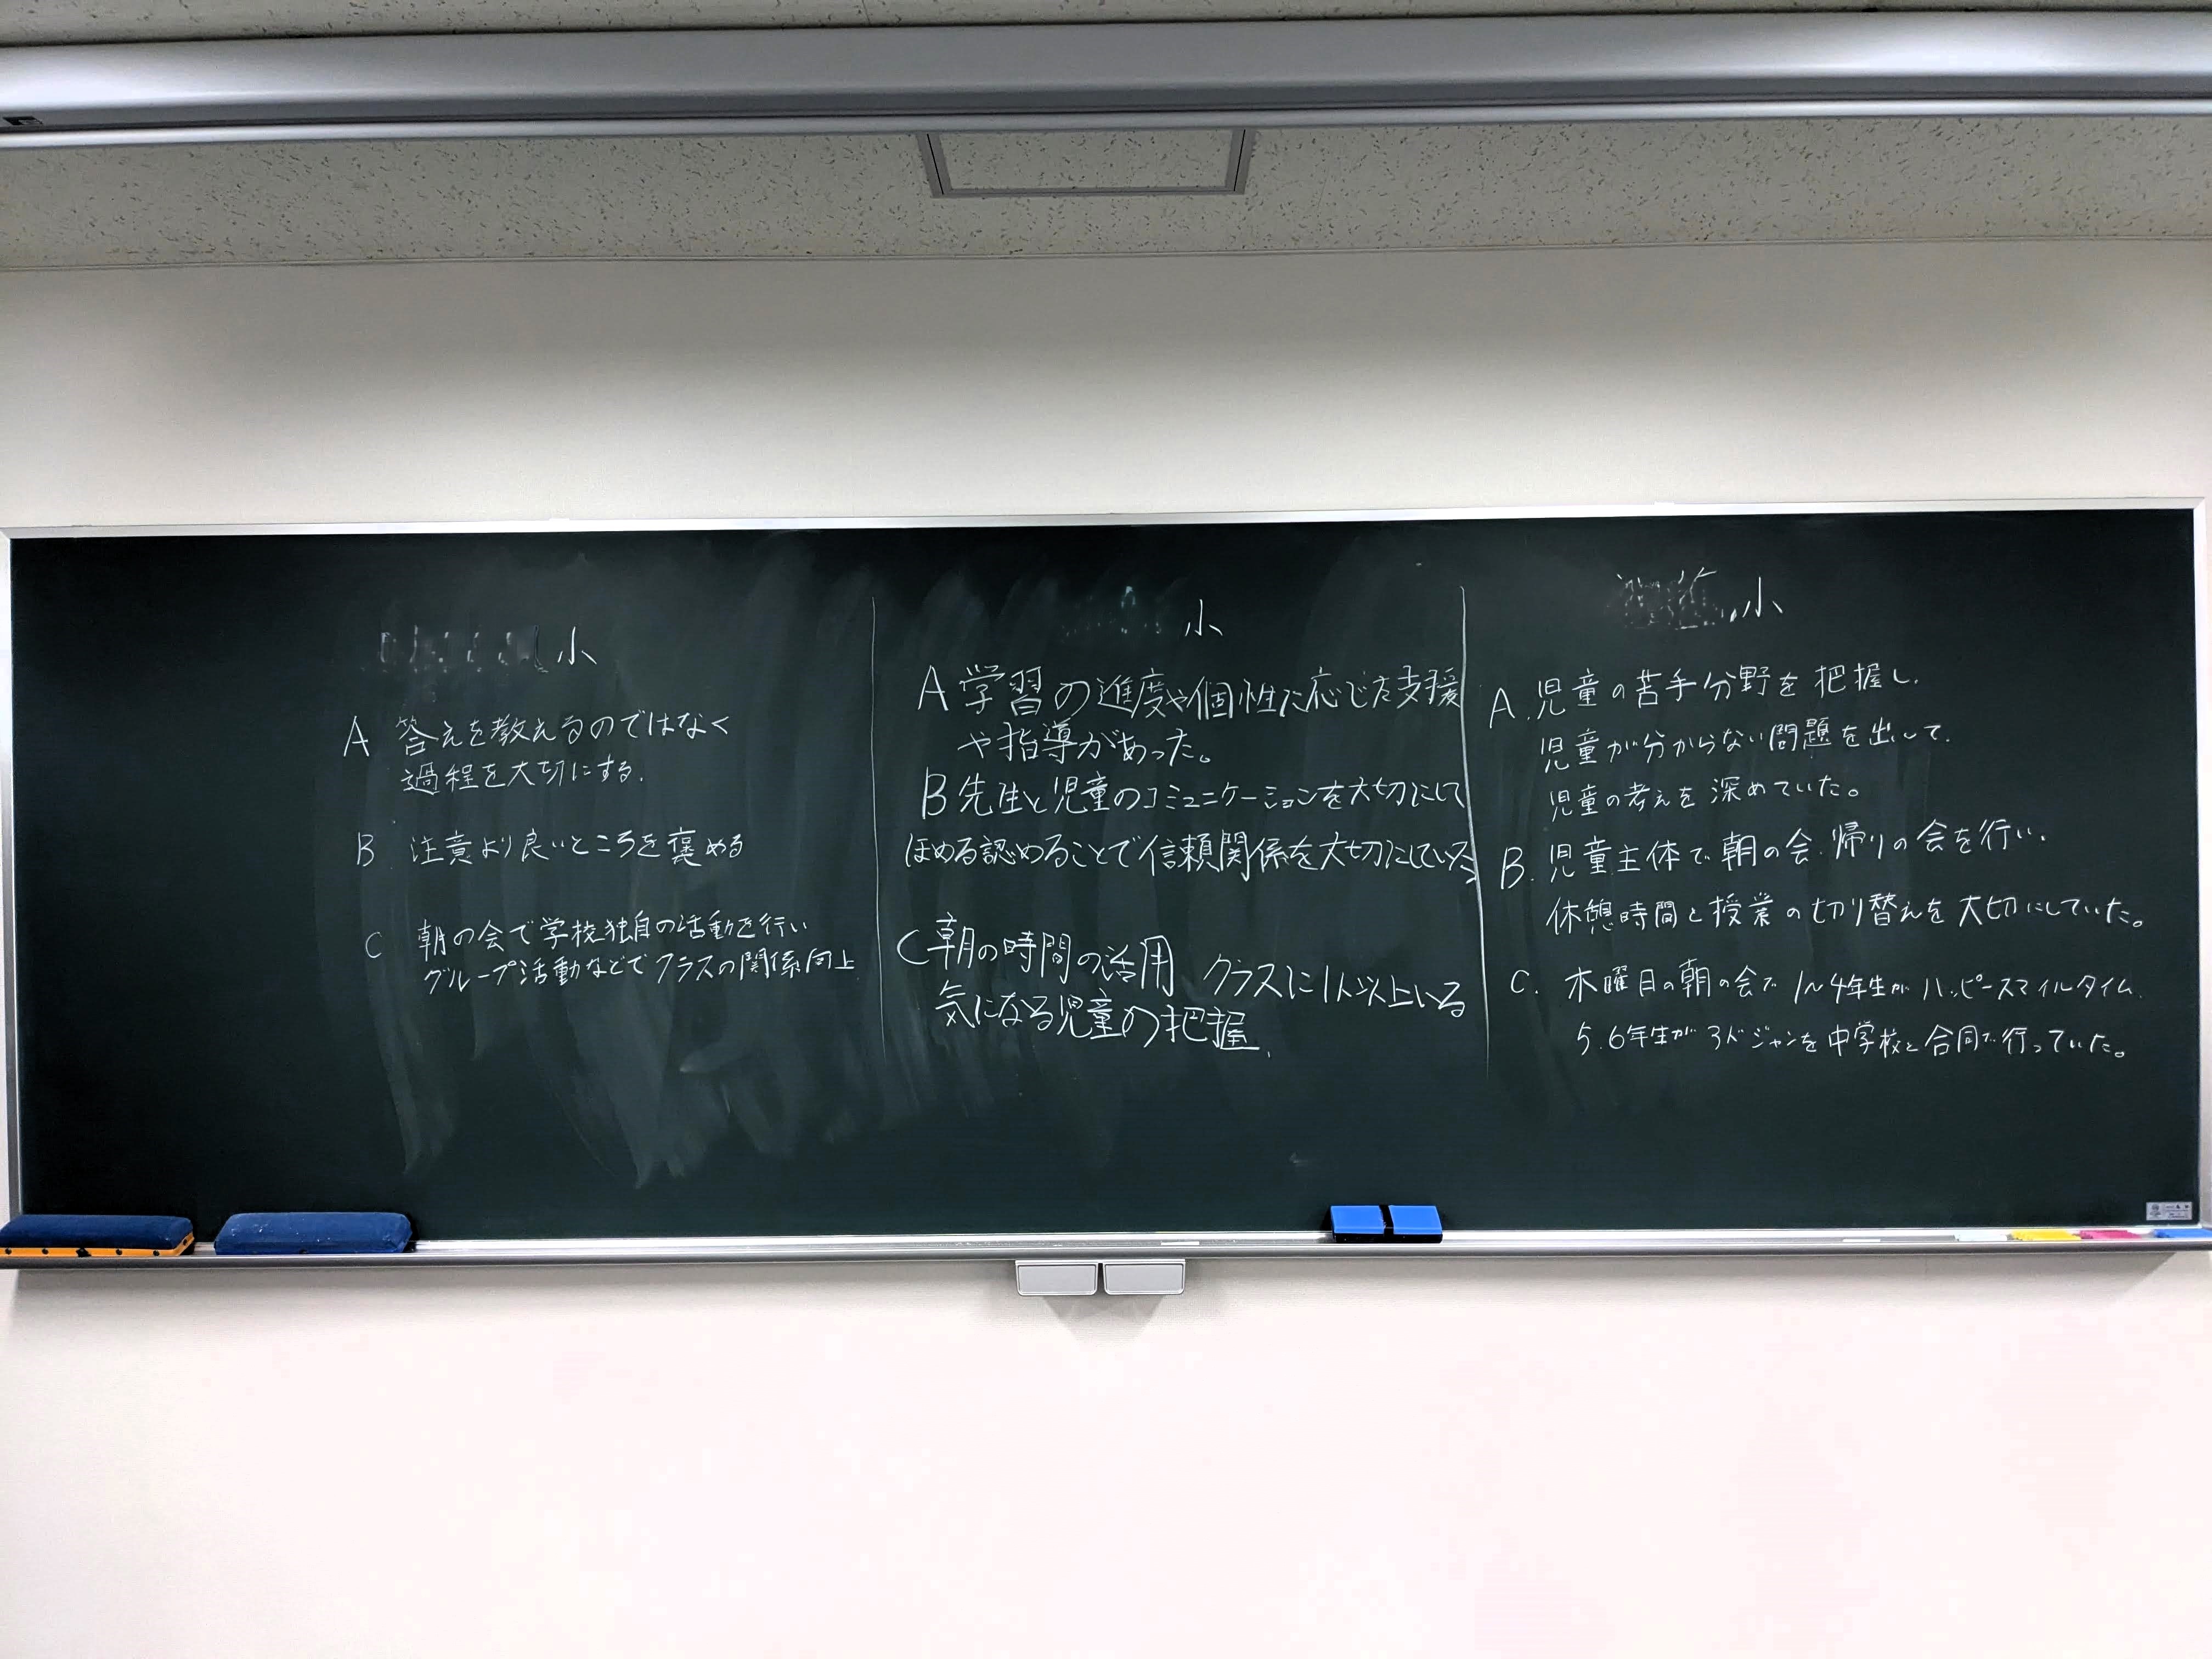 小
A 答えを教えるのではなく
過程を大切にする.
B. 注意より良いところを褒める
C 朝の会で学校独自の活動を行い
グループ活動などでクラスの関係向上
小
A 学習の進度や個性に応じた支援
や指導があった。
B 先生と児童のコミュニケーションを大切にして
ほめる認めることで信頼関係を大切にしていた
C 朝の時間の活用 クラスに1人以上いる
気になる児童の把握.
小
A. 児童の苦手分野を把握し、
児童が分からない問題を出して、
児童の考えを深めていた。
B. 児童主体で朝の会、帰りの会を行い、
休憩時間と授業の切り替えを大切にしていた。
C. 木曜日の朝の会で1~4年生がハッピースマイルタイム、
5.6年生が を中学校と合同で行っていた。